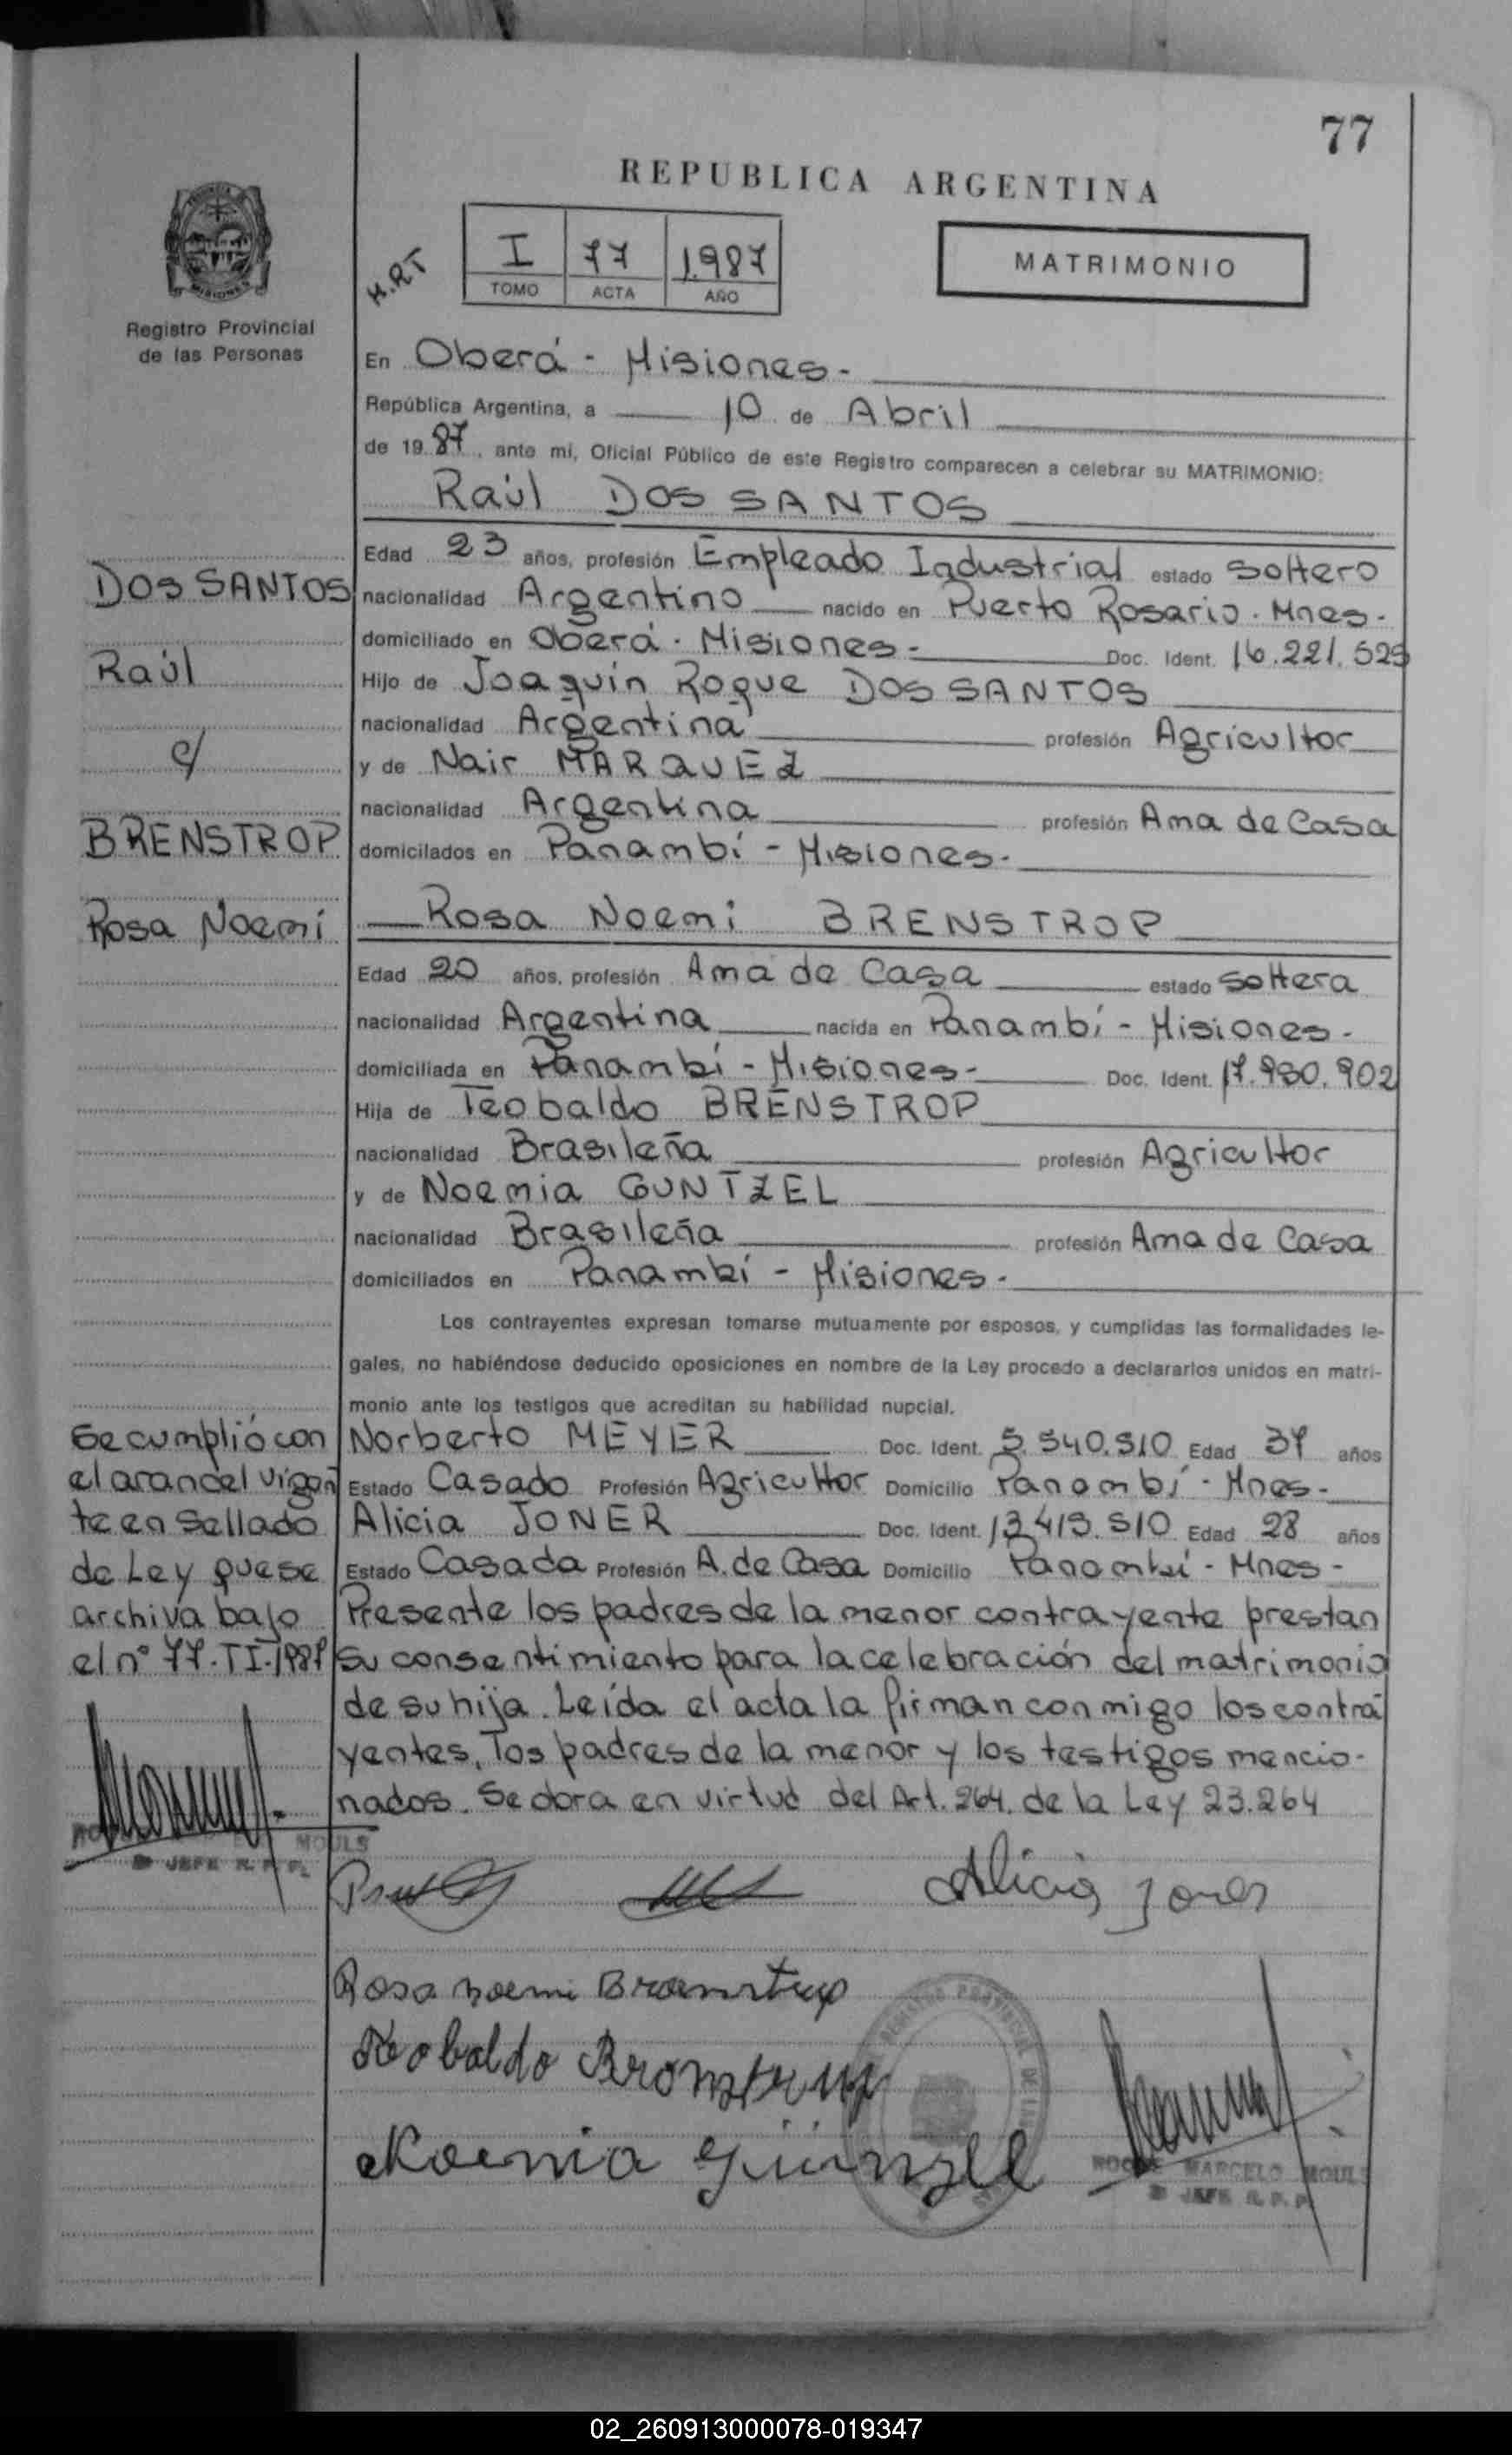 77
REPUBLICA ARGENTINA
H.RT
I 77 1987
TOMO ACTA AÑO
MATRIMONIO
MISIONES
Registro Provincial
de las Personas
En Oberá - Misiones -
República Argentina, a 10 de Abril
de 19 87, ante mí, Oficial Público de este Registro comparecen a celebrar su MATRIMONIO:
Raúl DOS SANTOS
Edad 23 años, profesión Empleado Industrial estado soltero
DOS SANTOS
nacionalidad Argentino nacido en Puerto Rosario. Mnes.
domiciliado en Oberá. Misiones - Doc. Ident. 16.221.525
Raúl
Hijo de Joaquín Roque DOS SANTOS
nacionalidad Argentina profesión Agricultor
c/
y de Nair MARQUEZ
nacionalidad Argentina profesión Ama de Casa
BRENSTROP
domicilados en Panambí - Misiones.
Rosa Noemí
Rosa Noemi BRENSTROP
Edad 20 años, profesión Ama de Casa estado soltera
nacionalidad Argentina nacida en Panambí - Misiones.
domiciliada en Panambí - Misiones - Doc. Ident. 17.950.902
Hija de Teobaldo BRENSTROP
nacionalidad Brasileña profesión Agricultor
y de Noemia GUNTZEL
nacionalidad Brasileña profesión Ama de Casa
domiciliados en Panambí - Misiones.
Los contrayentes expresan tomarse mutuamente por esposos, y cumplidas las formalidades le-
gales, no habiéndose deducido oposiciones en nombre de la Ley procedo a declararlos unidos en matri-
monio ante los testigos que acreditan su habilidad nupcial.
Norberto MEYER Doc. Ident. Edad años
Estado Casado Profesión Agricultor Domicilio Panambí - Mnes.
Alicia JONER Doc. Ident. Edad 28 años
Estado Casada Profesión A. de Casa Domicilio Panambí - Mnes -
Presente los padres de la menor contrayente prestan
su consentimiento para la celebración del matrimonio
de su hija. Leída el acta la firman conmigo los contra
yentes, los padres de la menor y los testigos mencio-
nados. Se obra en virtud del Art. 264. de la Ley 23.264
Se cumplió con
el arancel vigen
te en Sellado
de Ley que se
archiva bajo
el nº 77.TI-1987
MOULS
JEFE R. P. P.
Alicia Joner
Rosa Noemi Bromstrup
Teobaldo Bromstrup
Noemia Güinzel
ROQUE MARCELO MOULS
JEFE R. P. P.
02_260913000078-019347